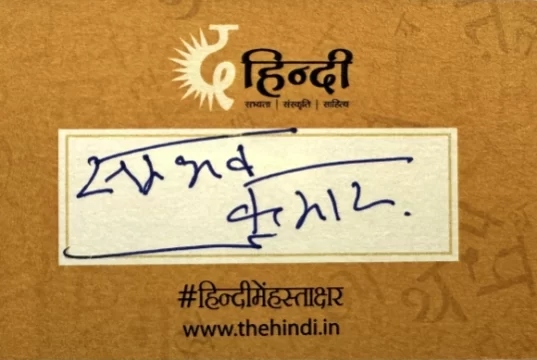 द हिन्दी
सभ्यता | संस्कृति | साहित्य
कुमार.
#हिन्दीमेंहस्ताक्षर
www.thehindi.in